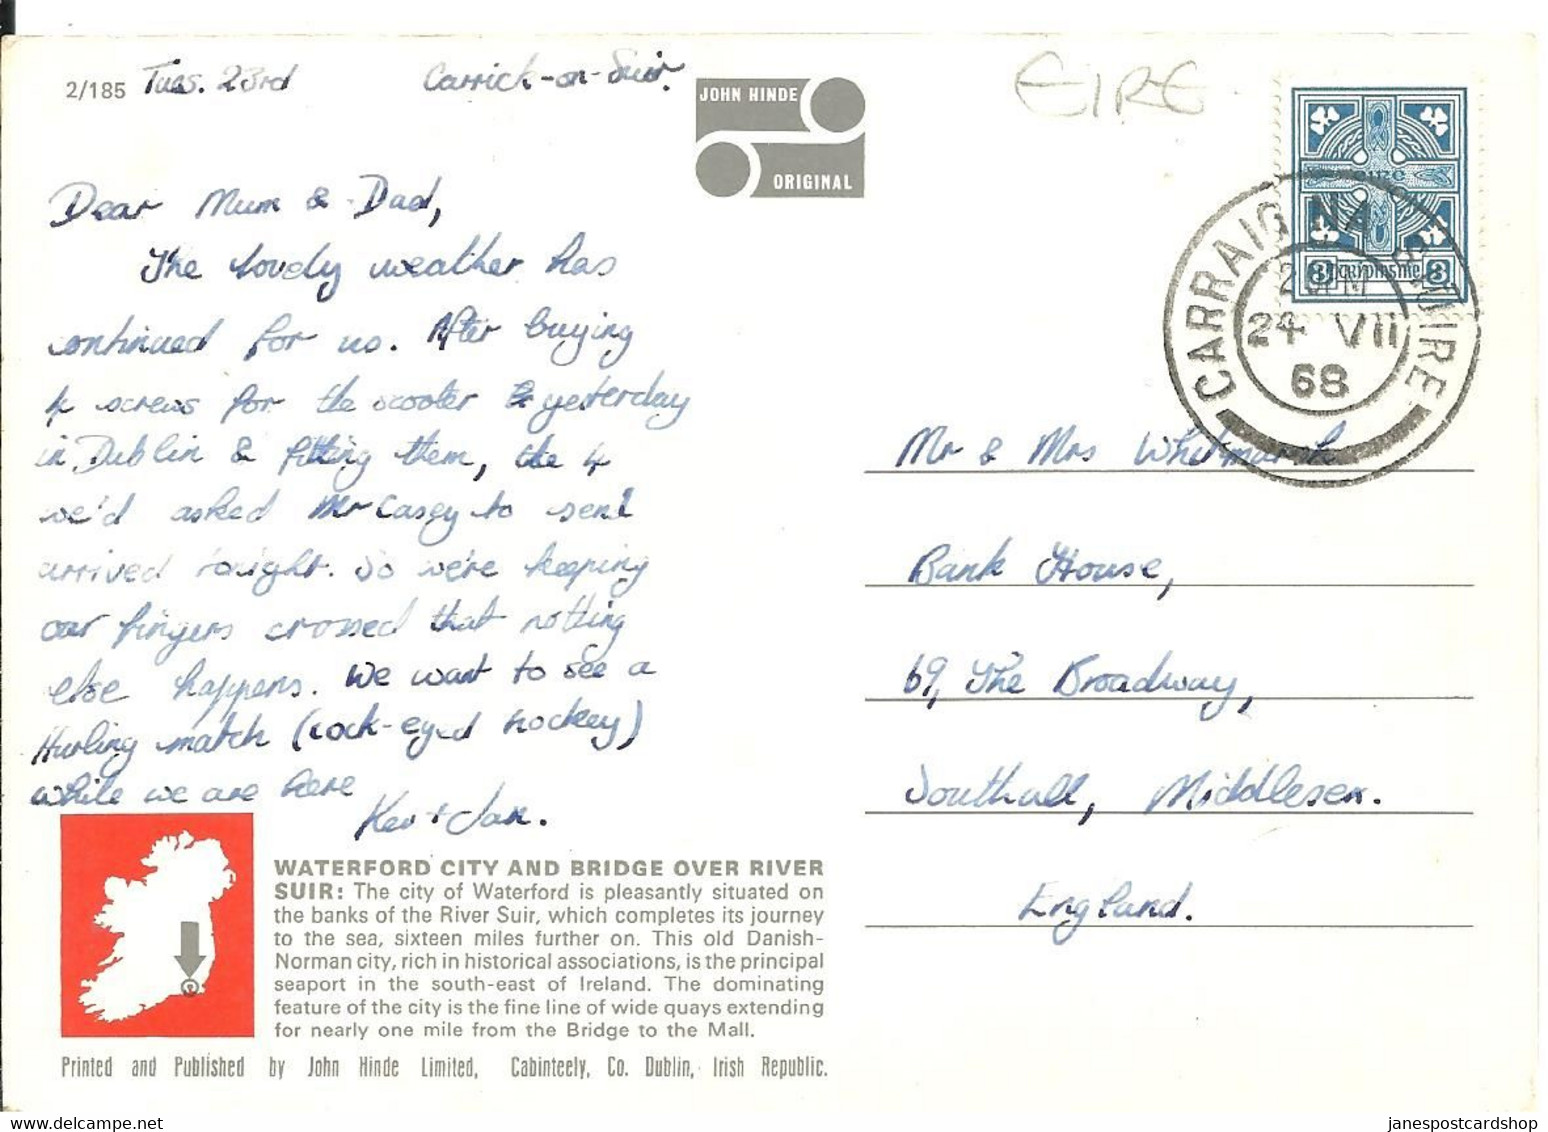 2/185 Tues. 23rd Carrick-on-Suir.
JOHN HINDE
ORIGINAL
EIRE
Dear Mum & Dad,
The lovely weather has
continued for us. After buying
4 screws for the scooter yesterday
in Dublin & fitting them, the 4
we'd asked Mr Casey to send
arrived tonight. So we're keeping
our fingers crossed that nothing
else happens. We want to see a
Hurling match (cock-eyed hockey)
while we are here
Kev + Jan.
WATERFORD CITY AND BRIDGE OVER RIVER
SUIR: The city of Waterford is pleasantly situated on
the banks of the River Suir, which completes its journey
to the sea, sixteen miles further on. This old Danish-
Norman city, rich in historical associations, is the principal
seaport in the south-east of Ireland. The dominating
feature of the city is the fine line of wide quays extending
for nearly one mile from the Bridge to the Mall.
Printed and Published by John Hinde Limited, Cabinteely, Co. Dublin, Irish Republic.
CARRAIG NA SIUIRE
24 VII
68
Mr & Mrs Whitmarsh
Bank House,
69, The Broadway,
Southall, Middlesex.
England.
janespostcardshop